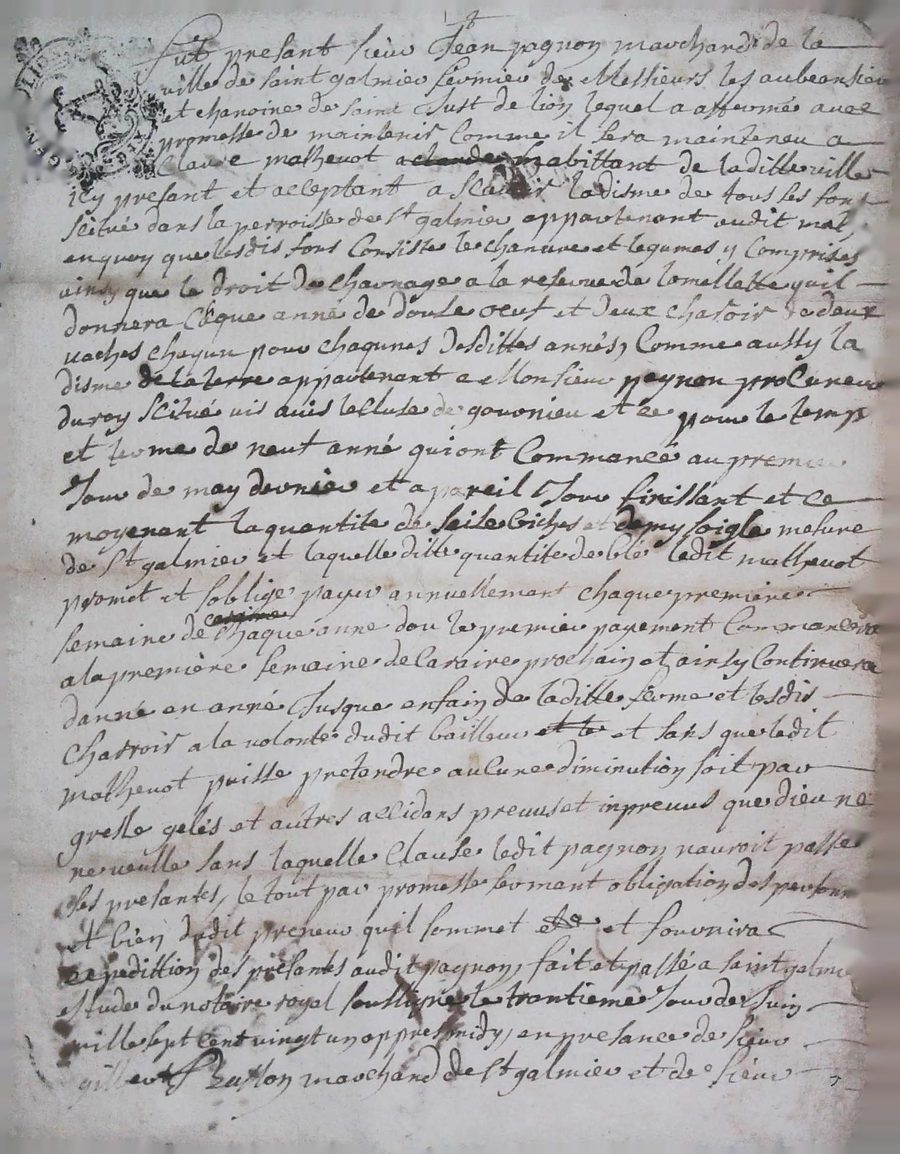 fut presant sieur Jean pagnon marchand de la
ville de saint galmier fermier de Messieurs les
et chanoine de saint Just de lion lequel a affermé avec
promesse de maintenir Comme il sera mainteneu a
Claude mathevot habittant de laditte ville
icy present et acceptant a scavoir la disme de tous ses fons
scitué dans la perroisse de St galmier appartenant audit mat,
en quoy que lesdis fons Consiste le chanvre et legumes y Comprises
ainsy que le droit de charnage a la reserve de quil
donnera chaque anné de douse oeuf et deux charoir de deux
vaches chaqun pour chaqunes desdittes annés, Comme aussy la
disme de la terre appartenant a Monsieur pagnon procureur
du roy scitué vis avis lecluse de et ce pour le temp
et terme de neuf anné qui ont Commancé au premier
Jour de may dernier et a pareil Jour finissant et ce
moyenent la quantite de seise biches et demy soigle mesure
de St galmier et laquelle ditte quantite de blé ledit mathevot
promet et soblige payer annuellement chaque premiere
semaine de chaque anné dou le premier payement Commancera
a la premiere semaine de Caraire prochain et ainsy Continuera
danné en anné Jusque enfain de laditte ferme et lesdis
charroir a la volonté dudit bailleur et sans que ledit
mathevot puisse pretendre aucune diminution soit par
gresle gelés et autres accidans prevus et inprevus que dieu ne
ne veulle sans laquelle Clause ledit pagnon nauroit passé
ses presantes, le tout par promesse serment obligation des personne
et bien dudit preneur quil sommet et fournira
expedittion des presantes audit pagnon, fait et passé a saint galmier
estude du notaire royal soussigné le trantieme Jour de Juin
mille sept cent vingt un appres midy, en presance de sieur
gilbert marchand de St galmier et de sieur